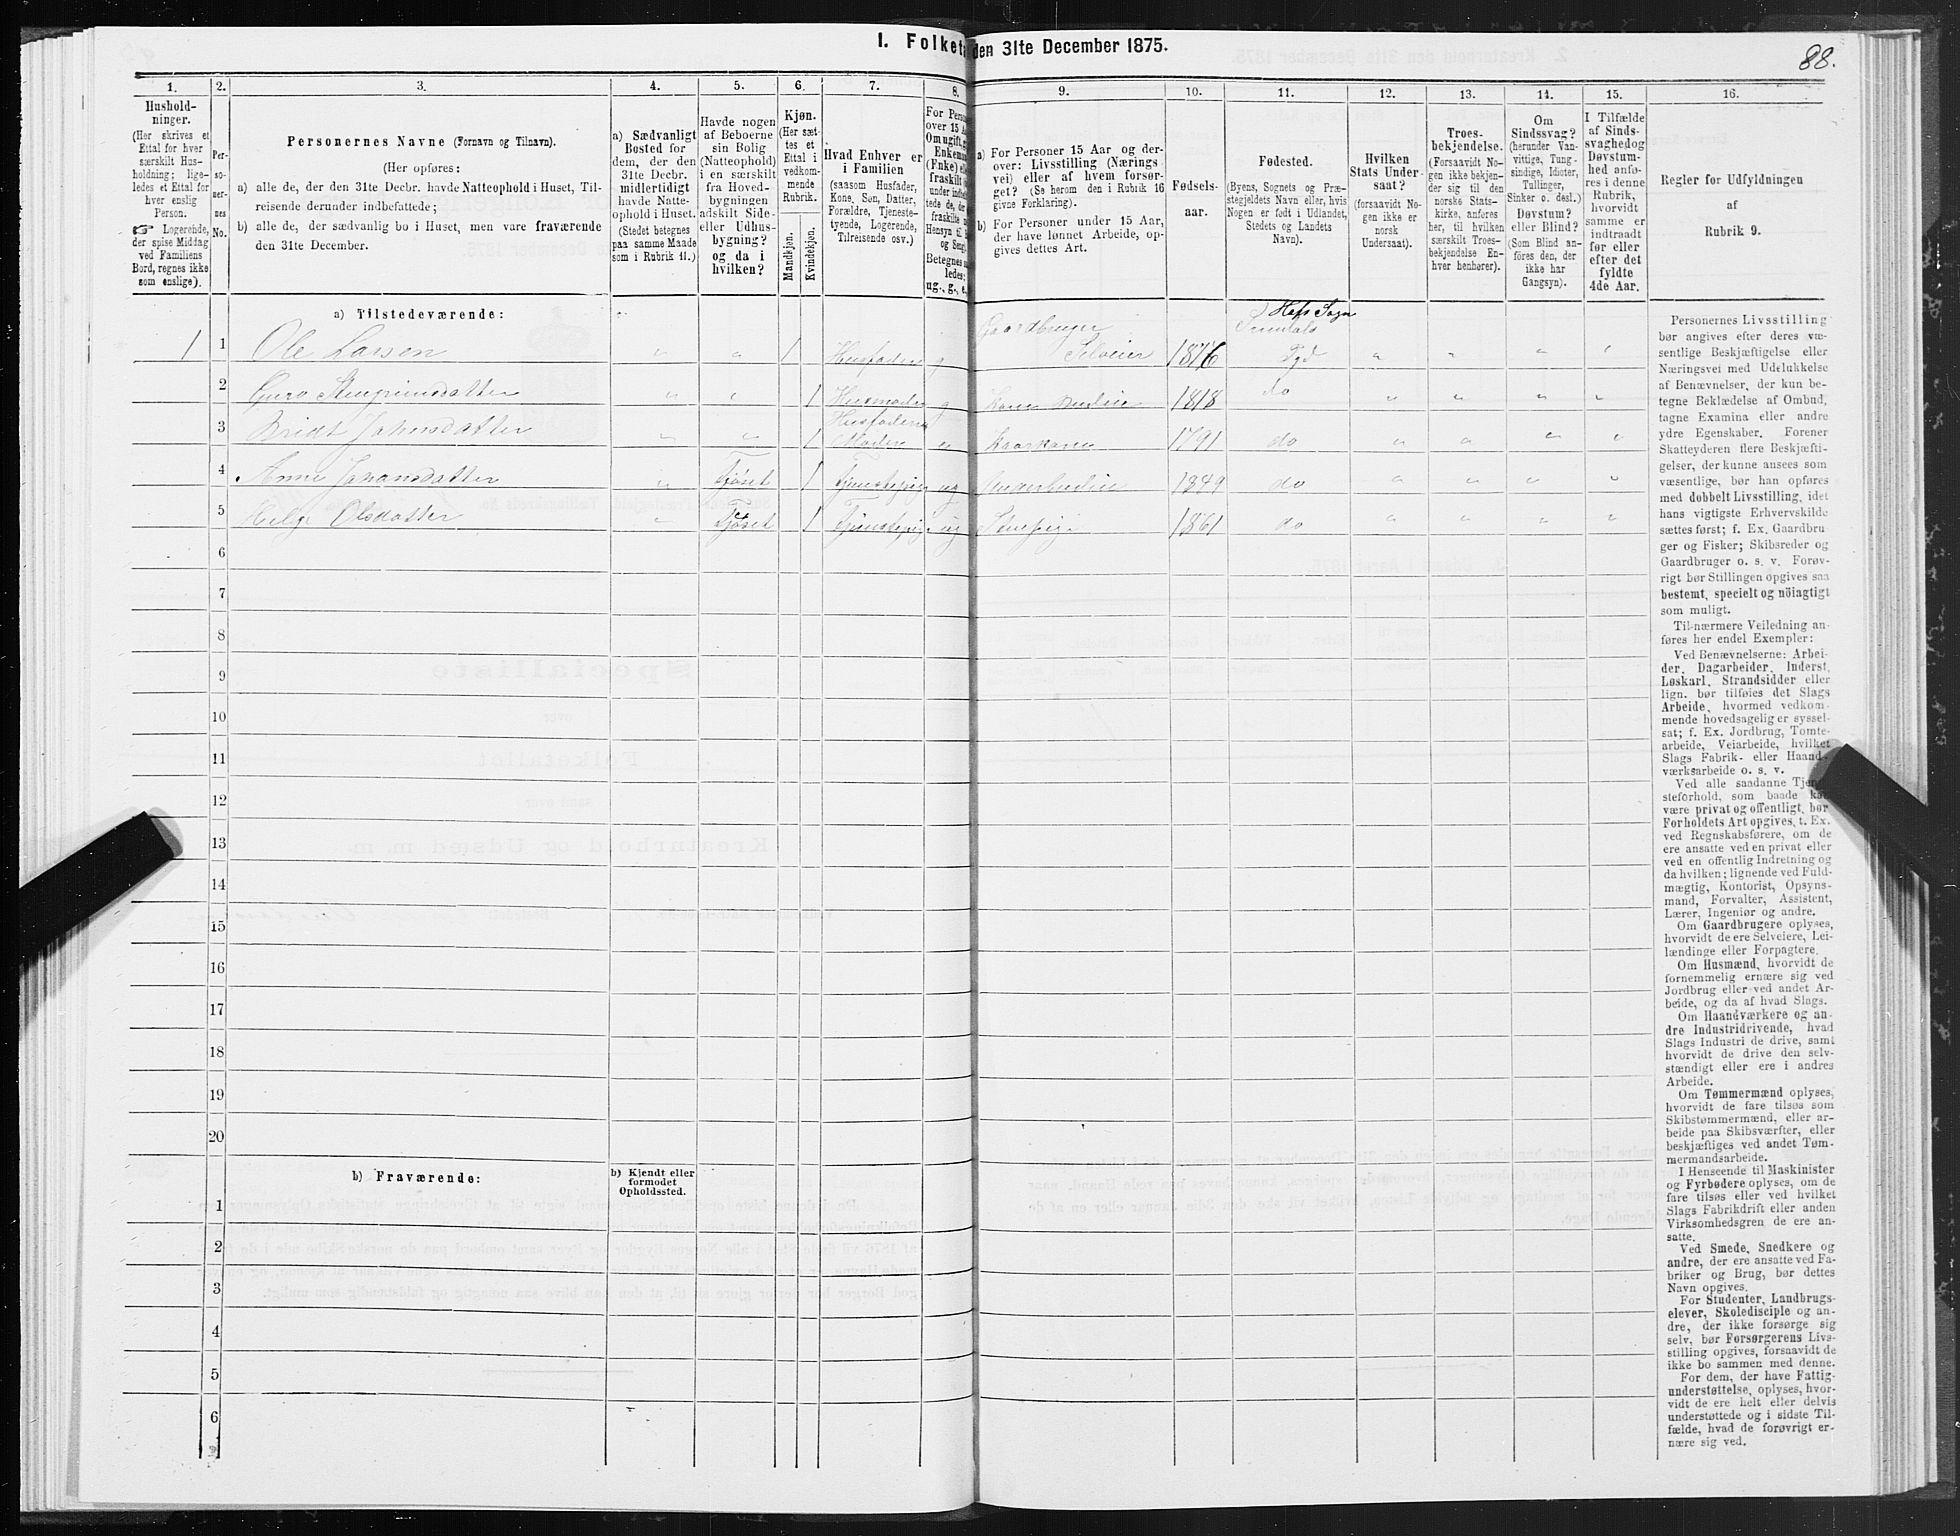 I. Folketa den 31te December 1875.
88.
1. 2. 3. 4. 5. 6. 7. 8. 9. 10. 11. 12. 13. 14. 15. 16.
Hushold-
ninger.
(Her skrives et
Ettal for hver
særskilt Hus-
holdning; lige-
ledes et Ettal for
hver enslig
Person.
☞ Logerende,
der spise Middag
ved Familiens
Bord, regnes ikke
som enslige).
Per-
so-
ner-
nes
No.
Personernes Navne (Fornavn og Tilnavn).
(Her opføres:
a) alle de, der den 31te Decbr. havde Natteophold i Huset, Til-
reisende derunder indbefattede;
b) alle de, der sædvanlig bo i Huset, men vare fraværende
den 31te December.
a) Sædvanligt
Bosted for
dem, der den
31te Decbr.
midlertidigt
havde Natte-
ophold i Huset.
(Stedet betegnes
paa samme Maade
som i Rubrik 11.)
Havde nogen
af Beboerne
sin Bolig
(Natteophold)
i en særskilt
fra Hoved-
bygningen
adskilt Side-
eller Udhus-
bygning?
og da i
hvilken?
Kjøn.
(Her sæt-
tes et
Ettal i
vedkom-
mende
Rubrik.
Mandkjøn.
Kvindekjøn.
Hvad Enhver er
i Familien
(saasom Husfader,
Kone, Søn, Datter,
Forældre, Tjeneste-
tyende, Logerende,
Tilreisende osv.)
For Perso
over 15 Aa
Om ugift, g
Enkeman
(Enke) elle
fraskilt
under indbe
tede de, de
fraskilte
Hensyn til
og Seng
Betegnes s
ledes:
ug., g., e.
a) For Personer 15 Aar og der-
over: Livsstilling (Nærings
vei) eller af hvem forsør-
get? (Se herom den i Rubrik 16
givne Forklaring).
b) For Personer under 15 Aar,
der have lønnet Arbeide, op-
gives dettes Art.
Fødsels-
aar.
Fødested.
(Byens, Sognets og Præ-
stegjeldets Navn eller, hvis
Nogen er født i Udlandet,
Stedets og Landets
Navn).
Hvilken
Stats Under-
saat?
(forsaavidt No-
gen ikke er
norsk
Undersaat).
Troes-
bekjendelse.
(Forsaavidt No-
gen ikke bekjen-
der sig til den
norske Stats-
kirke, anføres
her, til hvilken
særskilt Troes-
bekjendelse En-
hver henhører).
Om
Sindssvag?
(herunder Van-
vittige, Tung-
sindige, Idioter,
Tullinger,
Sinker o. desl.)
Døvstum?
eller Blind?
(Som Blind an-
føres den, der
ikke har
Gangsyn).
I Tilfælde
af Sinds-
svaghed og
Døvstum-
hed anfø-
res i denne
Rubrik,
hvorvidt
samme er
indtraadt
før eller
efter det
fyldte
4de Aar.
Regler for Udfyldningen
af
Rubrik 9.
a) Tilstedeværende:
1 1 Ole Larsen " " 1 Husfader g Gaardbruger Selveier 1816 Hafs Sogn Tgd " " " "
2 Guro " " 1 Husmoder g Kone 1818 do " " " "
3 Johnsdatter " " 1 Husfaders Moder e Kaarkone 1791 do " " " "
4 Anne Johansdatter " Fjøset 1 Tjenestepige ug 1849 do " " " "
5 Helge Olsdatter " Fjøset 1 Tjenestepige ug 1861 do " " " "
6
7
8
9
10
11
12
13
14
15
16
17
18
19
20
b) Fraværende:
b) Kjendt eller
formodet
Opholdssted.
1
2
3
4
5
6
Personernes Livsstilling
bør angives efter deres væ-
sentlige Beskjæftigelse eller
Næringsvei med Udelukkelse
af Benævnelser, der kun be-
tegne Beklædelse af Ombud,
tagne Examina eller andre
ydre Egenskaber. Forener
Skatteyderen flere Beskjæfti-
gelser, der kunne ansees som
væsentlige, bør han opføres
med dobbelt Livsstilling, idet
hans vigtigste Erhvervskilde
sættes først; f. Ex. Gaardbru
ger og Fisker; Skibsreder og
Gaardbruger o. s. v. Forøv-
rigt bør Stillingen opgives saa
bestemt, specielt og nöiagtigt
som muligt.
Til nærmere Veiledning an-
føres her endel Exempler:
Ved Benævnelserne: Arbei-
der, Dagarbeider, Inderst,
Løskarl, Strandsidder eller
lign. bør tilføies det Slags
Arbeide, hvormed vedkom-
mende hovedsagelig er syssel-
sat; f. Ex. Jordbrug, Tomte-
arbeide, Veiarbeide, hvilket
Slags Fabrik- eller Haand-
værksarbeide o. s. v.
Ved alle saadanne Tjene
steforhold, som baade kan
være privat og offentligt, bør
Forholdets Art opgives, t. Ex.
ved Regnskabsførere, om de
ere ansatte ved en privat eller
ved en offentlig Indretning og
da hvilken; lignende ved Fuld-
mægtig, Kontorist, Opsyns-
mand, Forvalter, Assistent,
Lærer, Ingeniør og andre.
Om Gaardbrugere oplyses,
hvorvidt de ere Selveiere, Lei-
lændinge eller Forpagtere.
Om Husmænd, hvorvidt de
fornemmelig ernære sig ved
Jordbrug eller ved andet Ar-
beide, og da af hvad Slags.
Om Haandværkere og an-
dre Industridrivende, hvad
Slags Industri de drive, samt
hvorvidt de drive den selv-
stændigt eller ere i andres
Arbeide.
Om Tømmermænd oplyses,
hvorvidt de fare tilsøs som
Skibstømmermænd, eller ar-
beide paa Skibsværfter, eller
beskjæftiges ved andet Tøm-
mermandsarbeide.
I Henseende til Maskinister
og Fyrbødere oplyses, om de
fare tilsøs eller ved hvilket
Slags Fabrikdrift eller anden
Virksomhedsgren de ere an-
satte.
Ved Smede, Snedkere og
andre, der ere ansatte ved Fa-
briker og Brug, bør dettes
Navn opgives.
For Studenter, Landbrugs-
elever, Skoledisciple og an-
dre, der ikke forsørge sig
selv, bør Forsørgerens Livs-
stilling opgives, forsaavidt de
ikke bo sammen med denne.
For dem, der have Fattig-
understøttelse, oplyses, hvor-
vidt de ere helt eller delvis
understøttede og i sidste Til-
fælde, hvad de forøvrigt er-
nære sig ved.